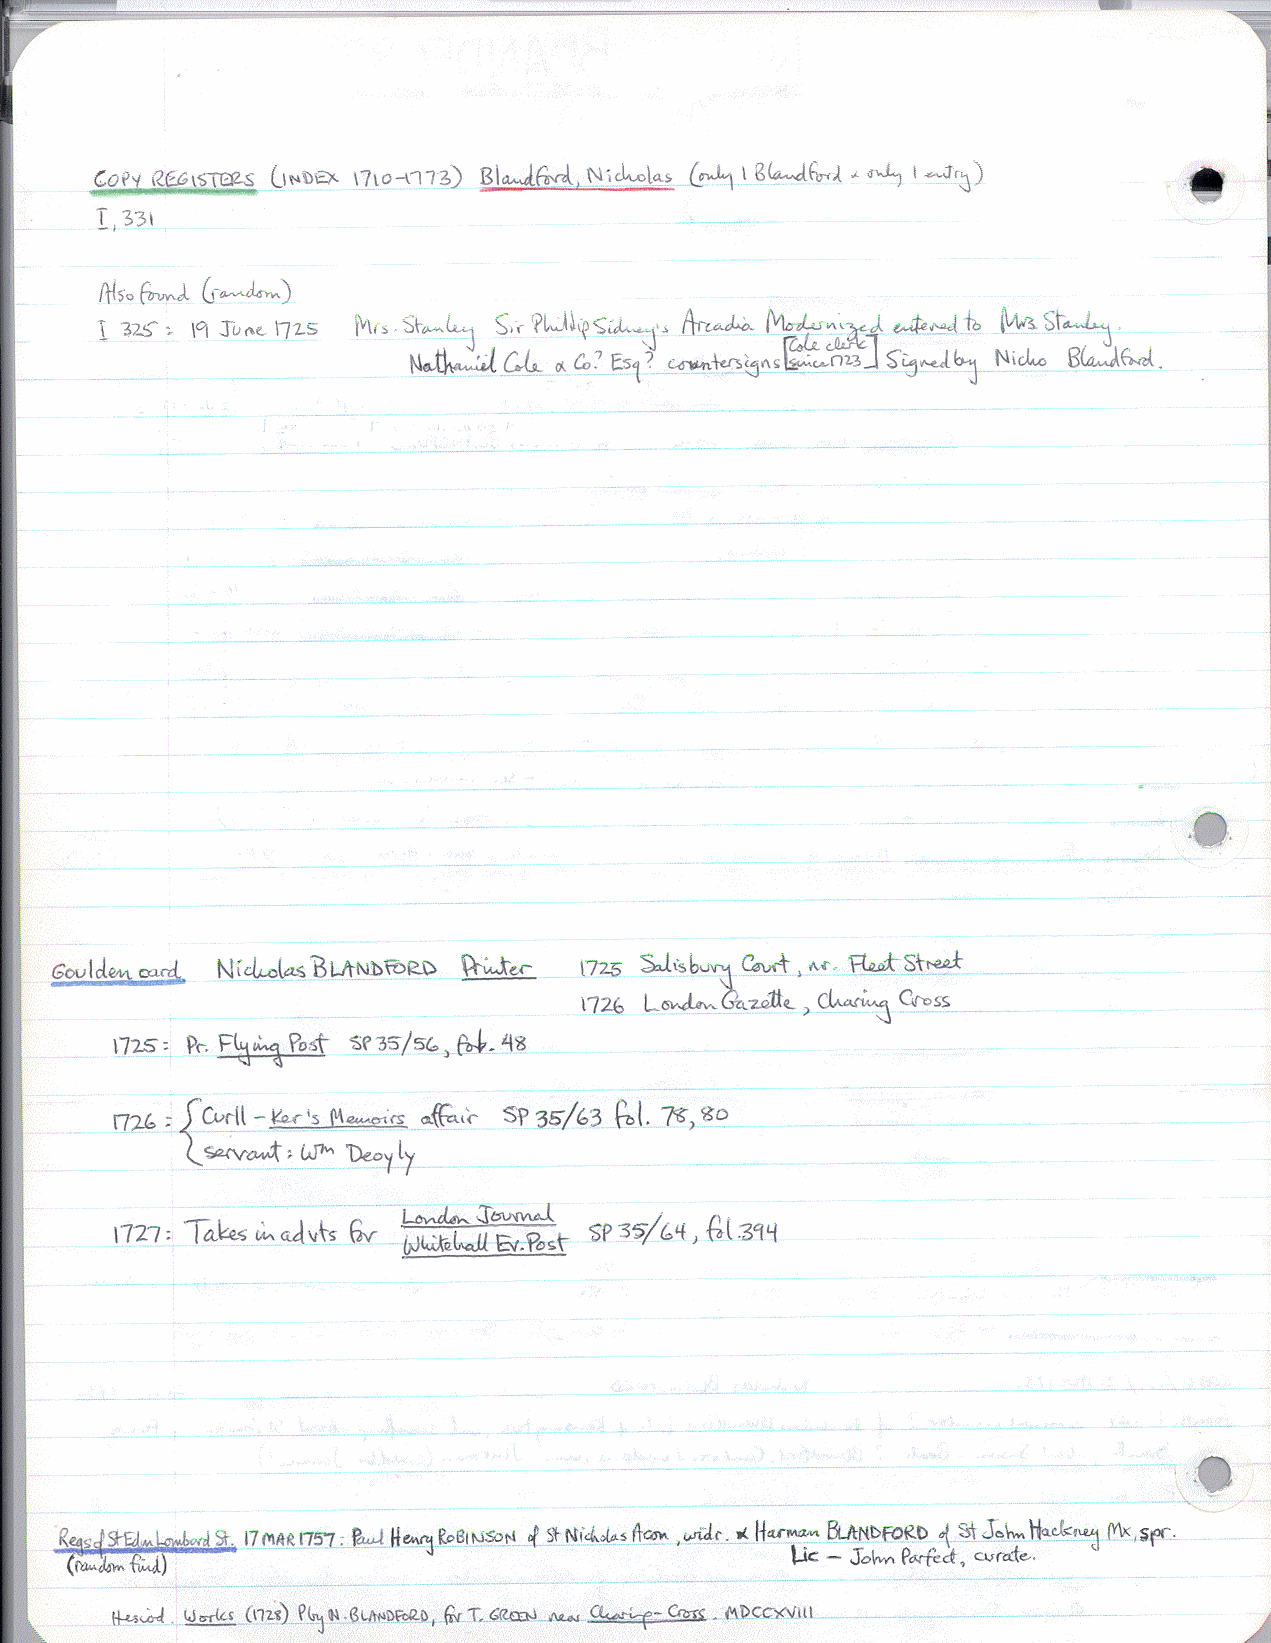 COPY REGISTERS (INDEX 1710-1773) Blandford, Nicholas (only 1 Blandford & only 1 entry)
I, 331
Also found (random)
I 325: 19 June 1725 Mrs. Stanley Sir Phillip Sidney's Arcadia Modernized entered to Mrs Stanley.
[Cole clerk
Nathaniel Cole & Co? Esq? countersigns since 1723] Signed by Nicho Blandford.
Goulden card Nicholas BLANDFORD Printer 1725 Salisbury Court, nr. Fleet Street
1726 London Gazette, Charing Cross
1725: Pr. Flying Post SP 35/56, fol. 48
1726: { Curll - Ker's Memoirs affair SP 35/63 fol. 78, 80
servant: Wm Deoyly
1727: Takes in advts for London Journal
Whitehall Ev. Post SP 35/64, fol. 394
Regs of St Edm Lombard St. 17 MAR 1757: Paul Henry ROBINSON of St Nicholas Acon, widr. & Harman BLANDFORD of St John Hackney Mx, spr.
(random find) Lic - John Parfect, curate.
Hesiod Works (1728) P by N. BLANDFORD, for T. GREEN near Charing-Cross. MDCCXVIII